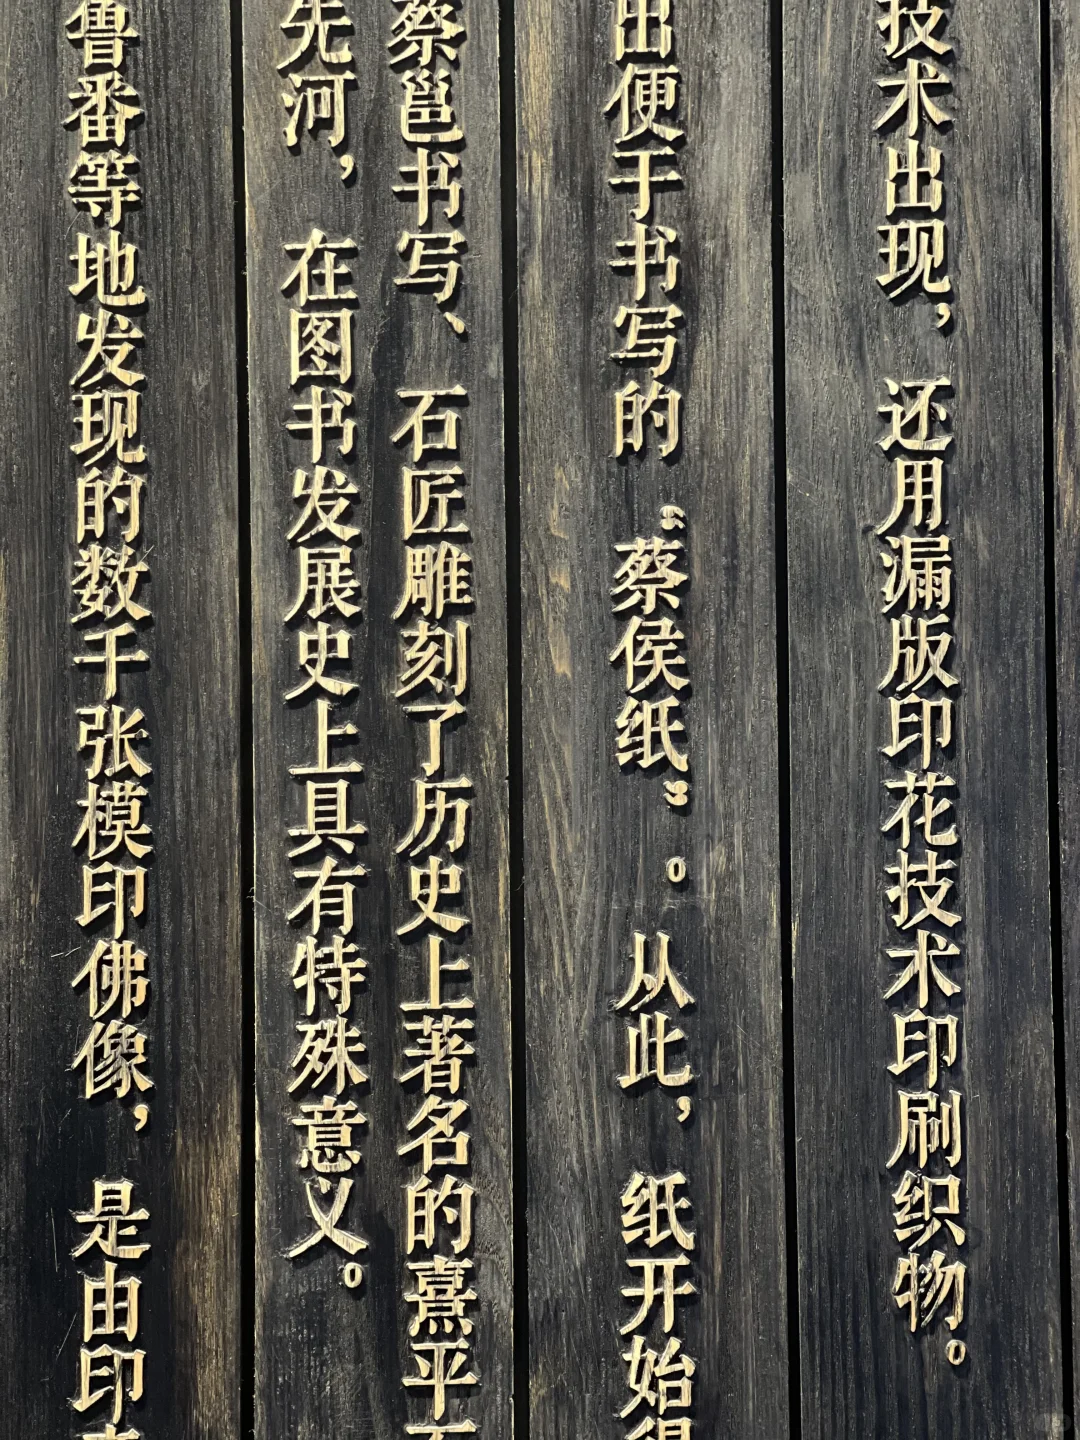 技术出现，还用漏版印花技术印刷织物。
出便于书写的“蔡侯纸”。从此，纸开始得
蔡邕书写、石匠雕刻了历史上著名的熹平石
先河，在图书发展史上具有特殊意义。
鲁番等地发现的数千张模印佛像，是由印